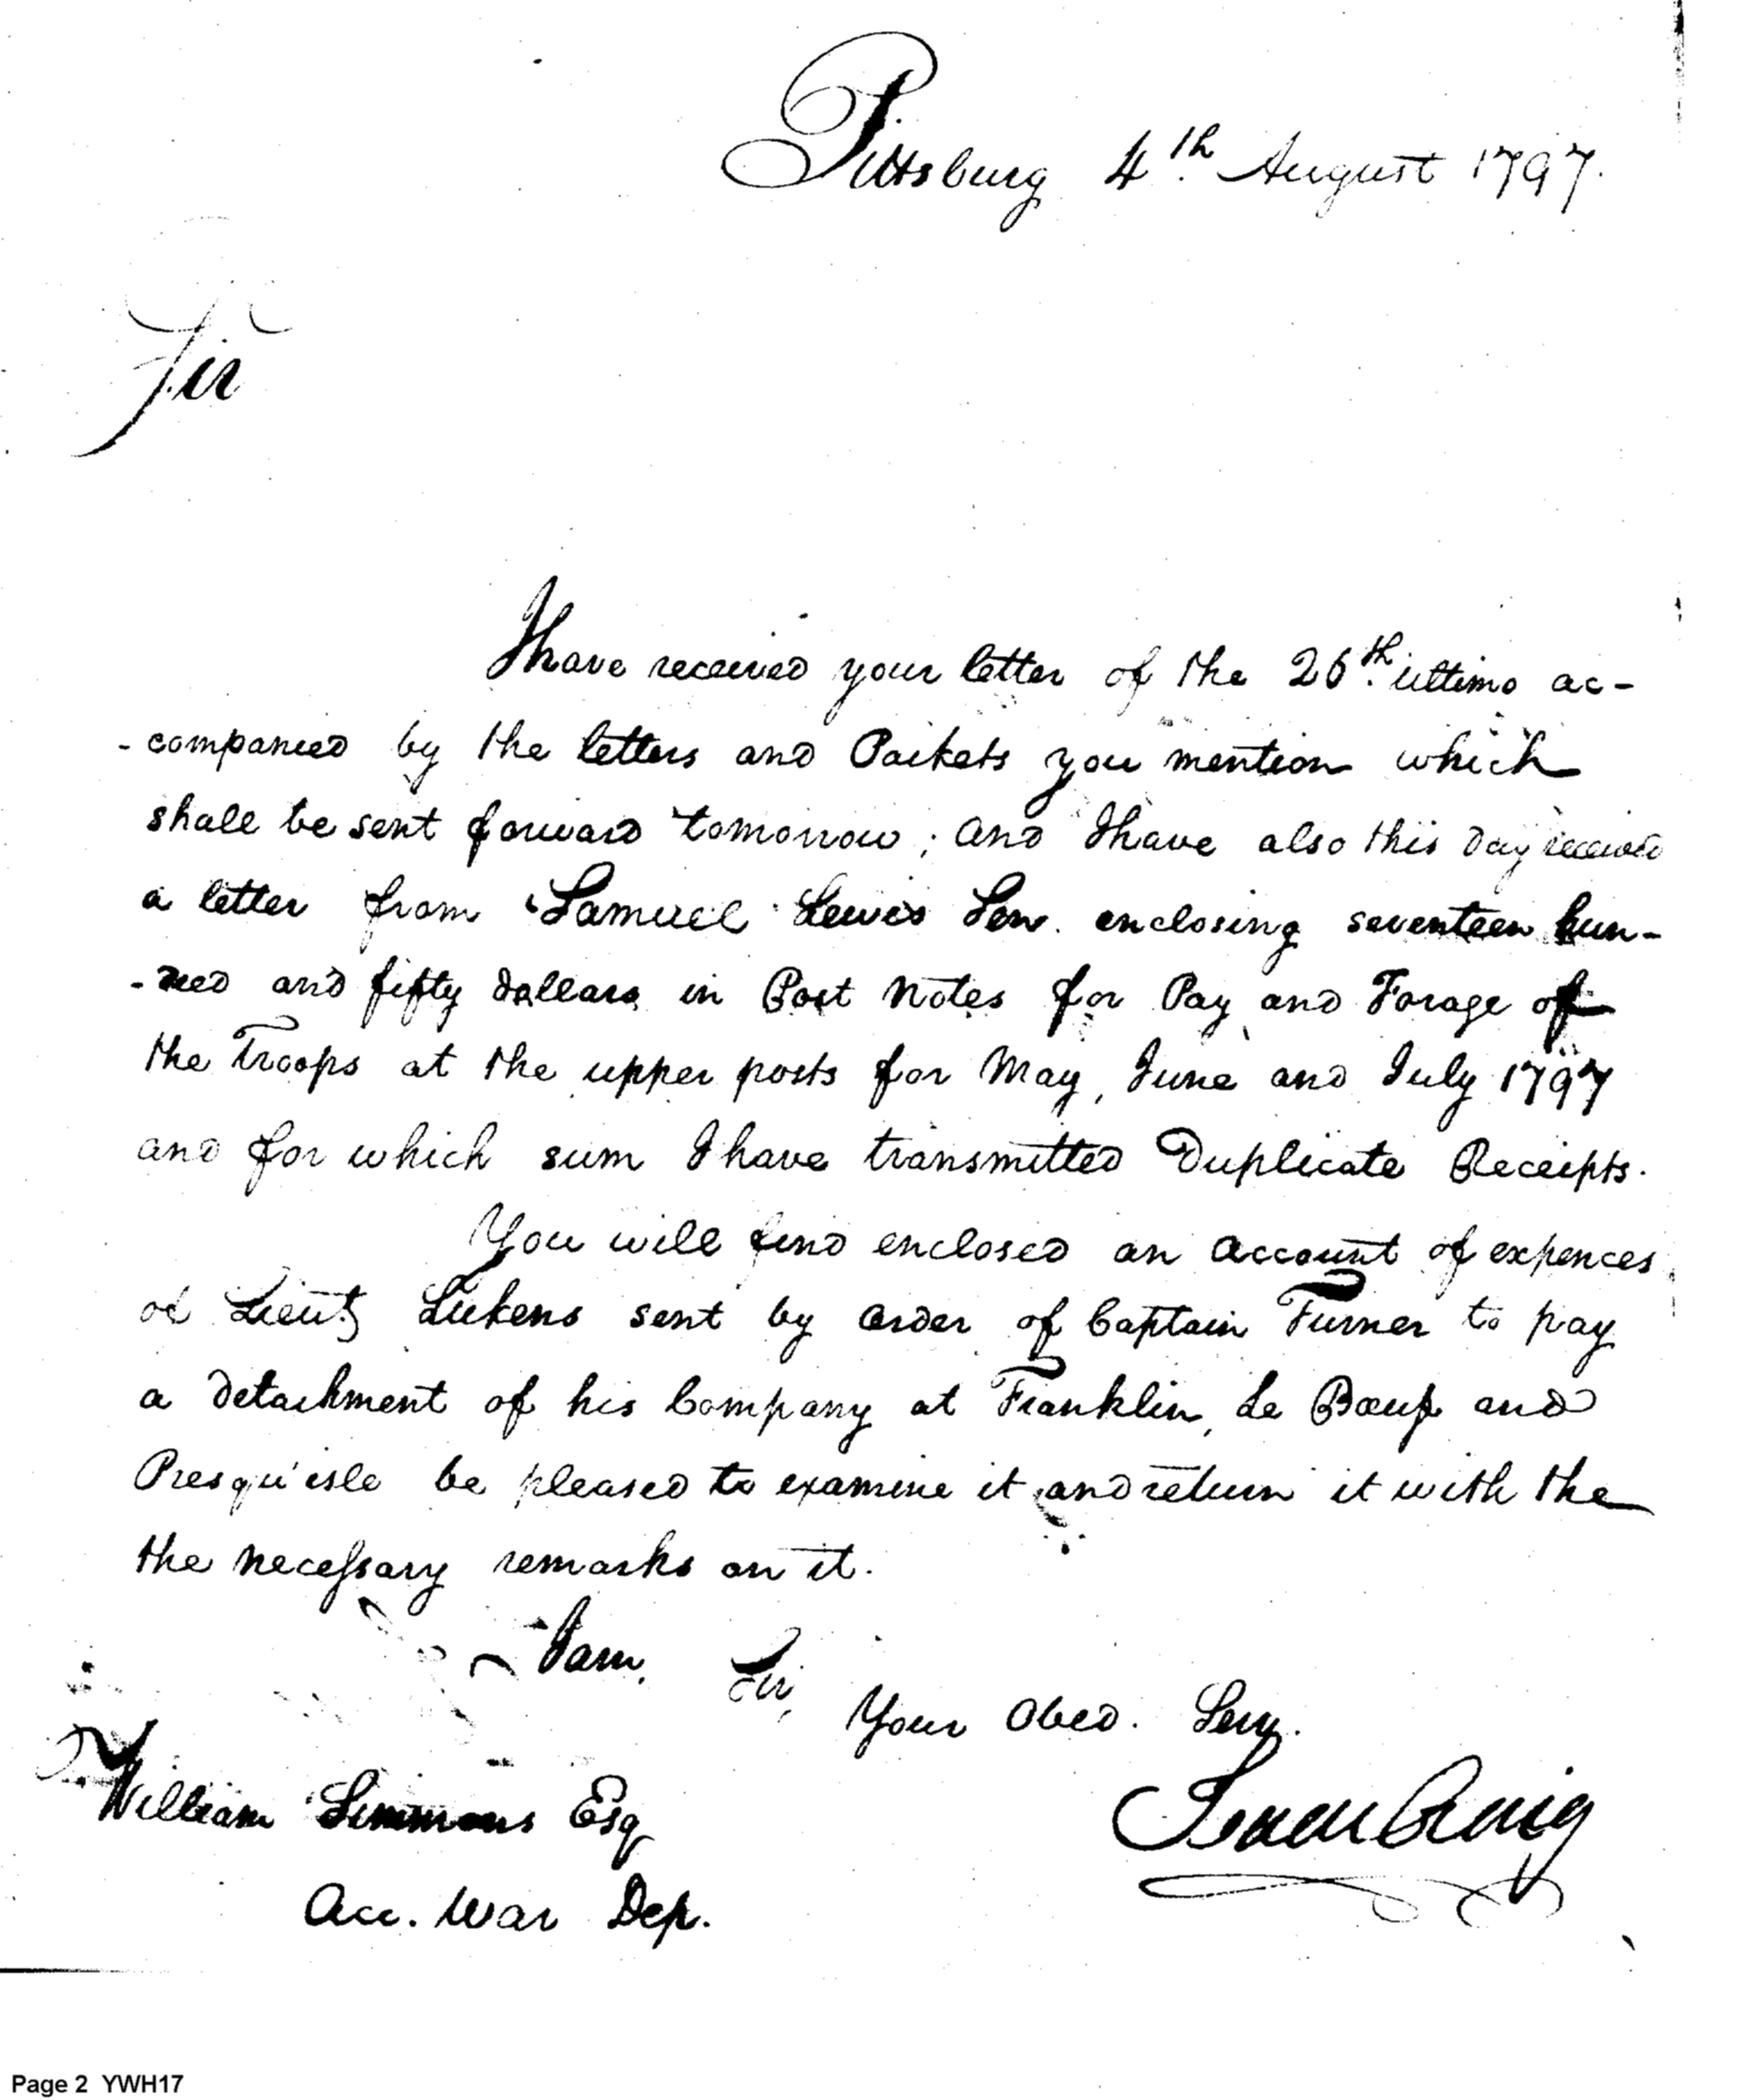 Pittsburg 4th August 1797.
Sir
I have received your letter of the 26th ultimo ac-
-companied by the letters and Packets you mention which
shall be sent forward tomorrow; and I have also this day received
a letter from Samuel Lewis Sen. enclosing seventeen hun-
-dred and fifty dollars in Post Notes for Pay and Forage of
the Troops at the upper posts for May, June and July 1797
and for which sum I have transmitted Duplicate Receipts.
You will find enclosed an account of expences
of Lieut Lukens sent by order of Captain Turner to pay
a detachment of his Company at Franklin, Le Bœuf and
Presqu'isle be pleased to examine it and return it with the
the necessary remarks on it.
I am, Sir,
Your Obed. Serv.
Isaac Craig
William Simmons Esq
Acc. War Dep.
Page 2 YWH17